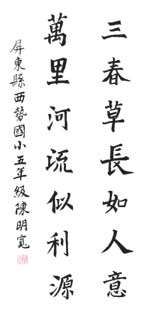 三春草長如人意
萬里河流似利源
屏東縣西勢國小五年級陳明寬